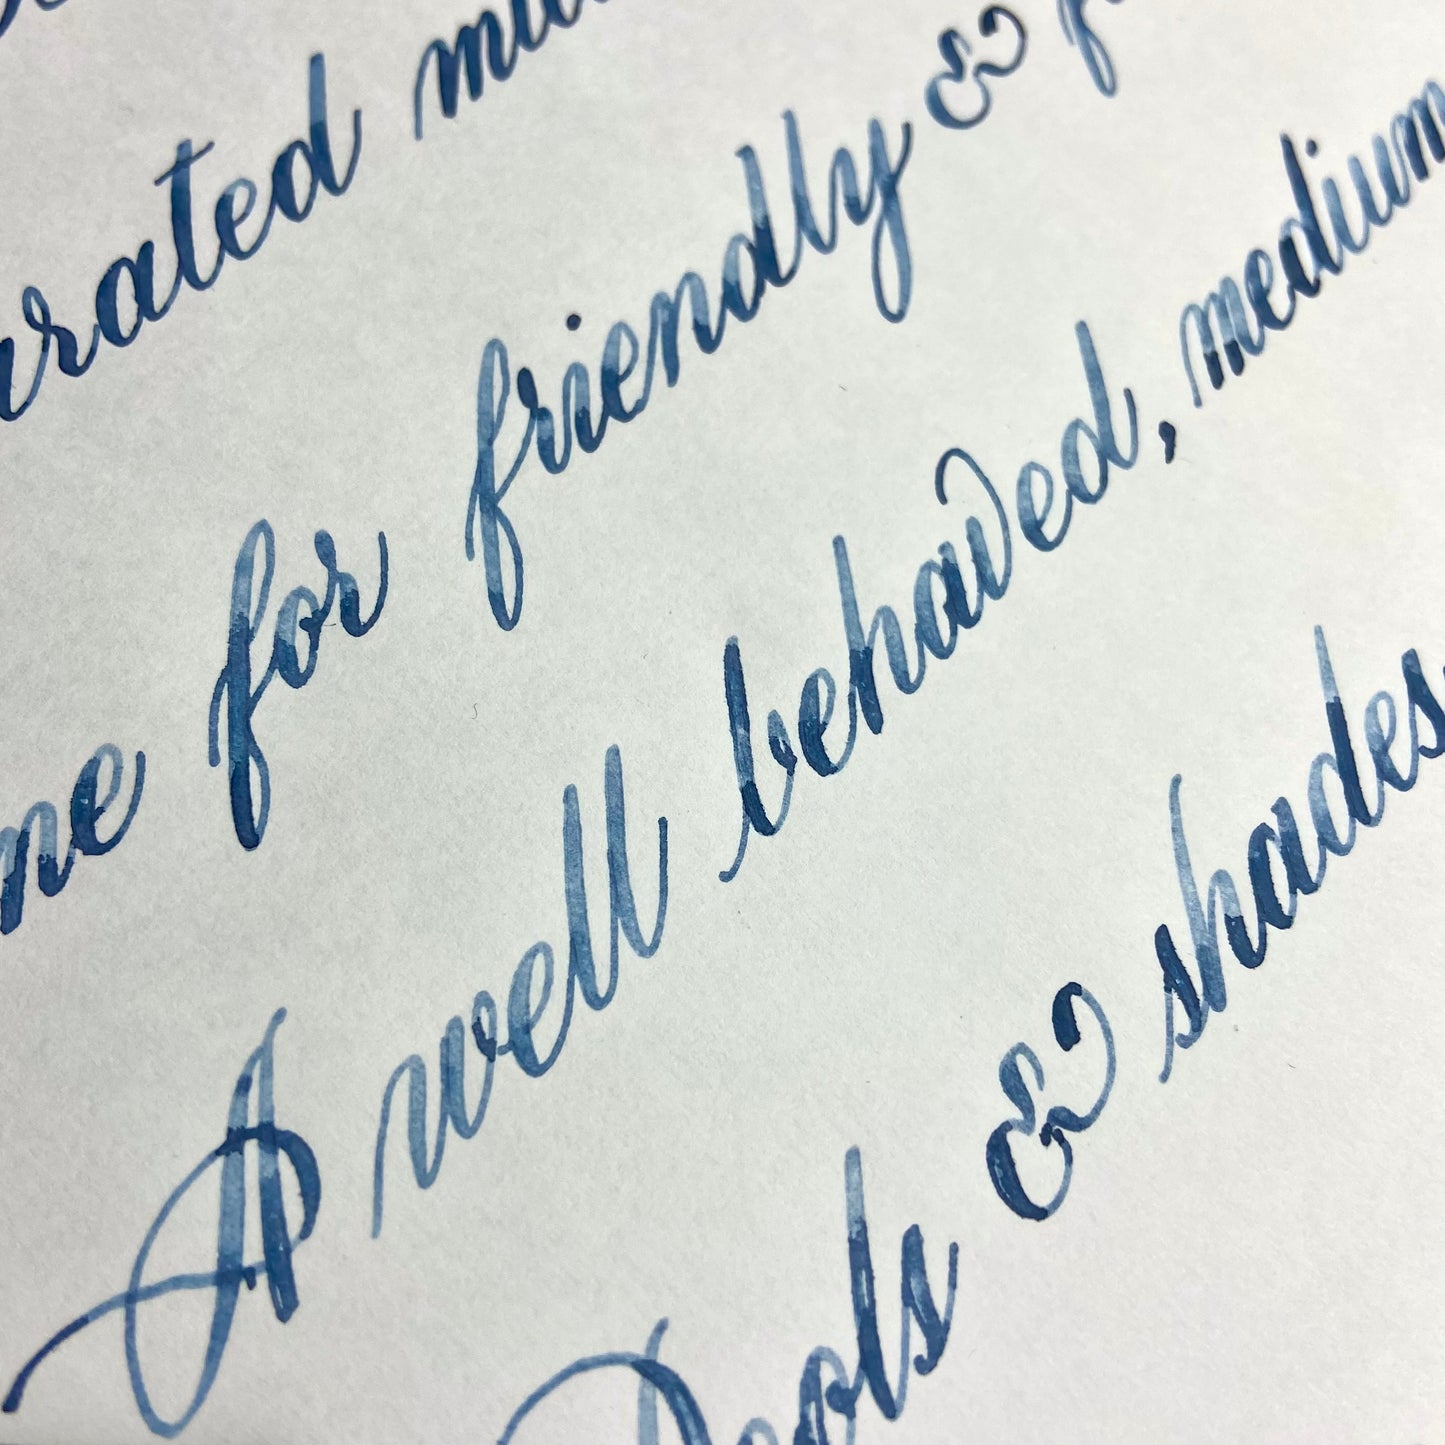 urated mu
ne for friendly & f
A well behaved, medium
Pools & shades